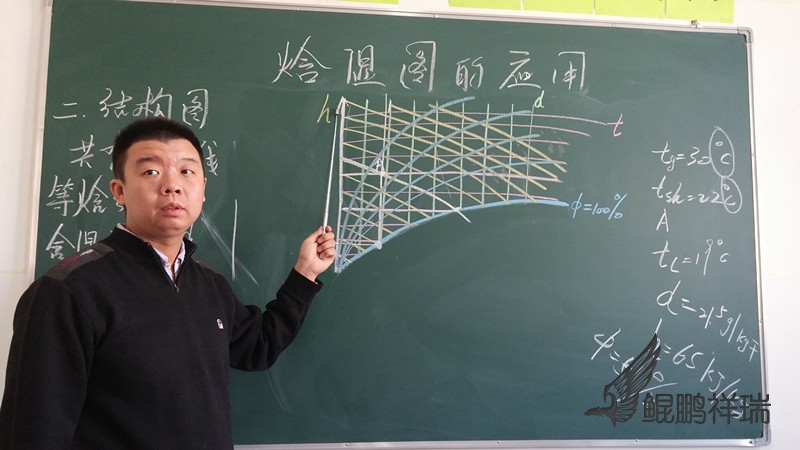 焓湿图的应用
二.结构图
共
线
等焓
含湿
h
d
t
A
φ=100%
tg=30℃
tsh=22℃
A
tL=19℃
d=21.5g/kg干
h=65kJ/kg
φ=
鲲鹏祥瑞